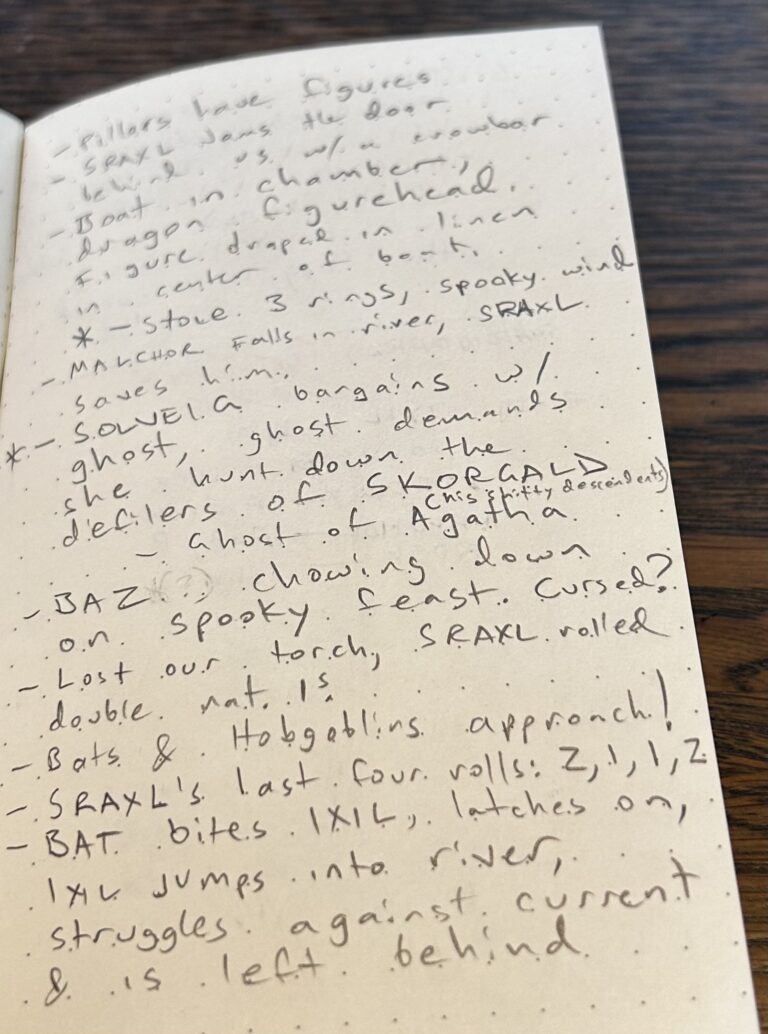 - Pillars have figures
- SRAXL Jams the door
behind us w/ a crowbar
- Boat in chamber,
dragon figurehead.
Figure draped in linen
in center of boat.
* - Stole 3 rings, spooky wind
- MALCHOR Falls in river, SRAXL
saves him.
* - SOLVEIG bargains w/
ghost, ghost demands
she hunt down the
defilers of SKORGALD
(his shitty descendents)
- Ghost of Agatha
- BAZ chowing down
on spooky feast. Cursed?
- Lost our torch, SRAXL rolled
double nat 1s.
- Bats & Hobgoblins approach!
- SRAXL's last four rolls: 2, 1, 1, 2
- BAT bites IXIL, latches on,
IXIL Jumps into river,
struggles against current
& is left behind